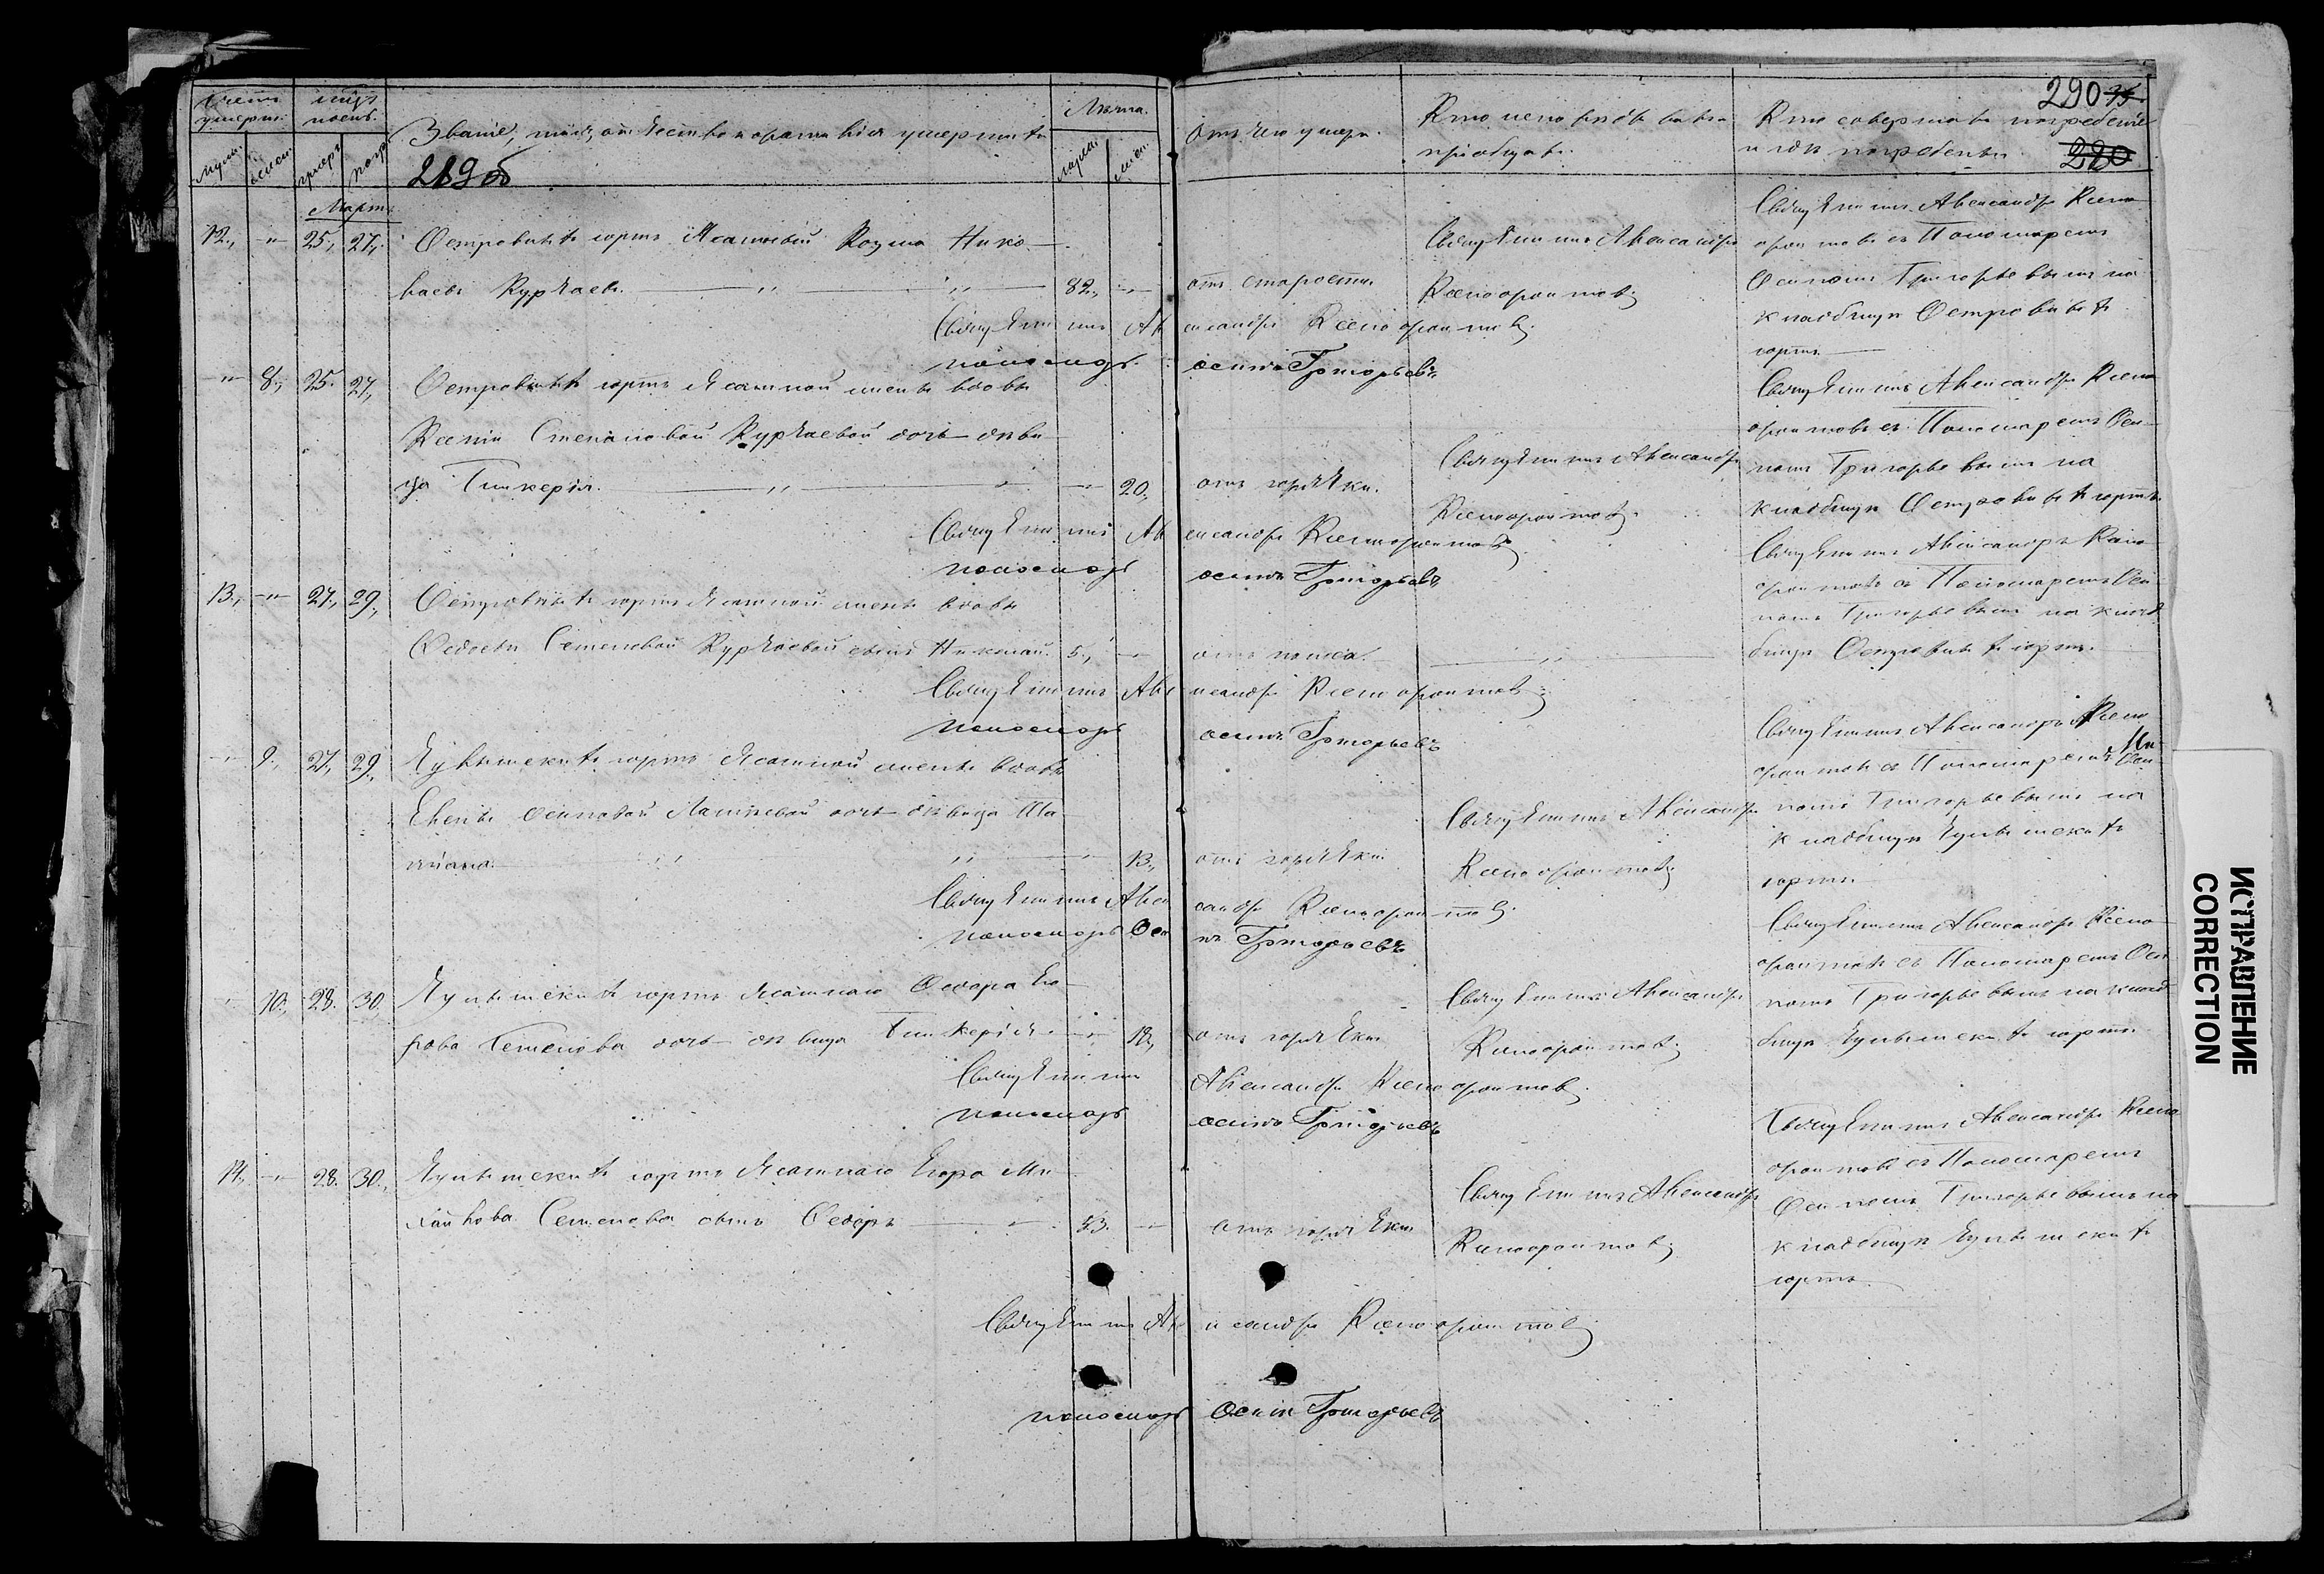 Счетъ умерш.
Мѣсяцъ
Званіе, имя, отчество и фамилія умершихъ
Лѣта.
отъ чего умеръ.
Кто исповѣдывалъ и пріобщалъ.
Кто совершалъ погребеніе и гдѣ погребены.
290 35
220
Муж.
Женск.
умеръ
погр.
289 об
Мартъ
12., -"- 25., 27.,
Островныхъ юртъ Ясашный Козма Нико-
лаевъ Курчаевъ. 82., -"-
отъ старости.
Священникъ Александръ
Ксенофонтовъ
Священникъ Александръ Ксено
фонтовъ съ Пономаремъ
Осипомъ Григорьевымъ на
кладбищѣ Островныхъ
юртъ.
Священникъ Александръ Ксенофонтовъ.
пономарь Осипъ Григорьевъ
-"- 8., 25. 27.,
Островныхъ юртъ Ясашной вдовы
Ксеніи Степановой Курчаевой дочь дѣви
ца Гликерія. 20.
отъ горячки.
Священникъ Александръ
Ксенофонтовъ.
Священникъ Александръ Ксено
фонтовъ съ Пономаремъ Оси-
помъ Григорьевымъ на
кладбищѣ Островныхъ юртъ.
Священникъ Александръ Ксенофонтовъ
пономарь Осипъ Григорьевъ
13., -"- 27., 29.,
Островныхъ юртъ Ясашной вдовы
Семеновой Курчаевой сынъ Николай. 5., -"-
Священникъ Александръ Ксено
фонтовъ съ Пономаремъ Оси
помъ Григорьевымъ на клад
бищѣ Островныхъ юртъ.
Священникъ Александръ Ксенофонтовъ
пономарь Осипъ Григорьевъ
-"- 9., 27., 29.,
юртъ Ясашной вдовы
Елены Осиповой дочь дѣвица Та
тіана. 13.,
отъ горячки
Священникъ Александръ
Ксенофонтовъ
Священникъ Александръ Ксено
фонтовъ съ Пономаремъ Оси
помъ Григорьевымъ на
кладбищѣ
юртъ.
Священникъ Александръ Ксенофонтовъ.
пономарь Осипъ Григорьевъ
-"- 10., 28. 30.
юртъ Ясашнаго Федора Его-
рова Семенова дочь дѣвица Гликерія 18.,
отъ горячки
Священникъ Александръ
Ксенофонтовъ
Священникъ Александръ Ксено
фонтовъ съ Пономаремъ Оси
помъ Григорьевымъ на клад
бищѣ юртъ.
Священникъ Александръ Ксенофонтовъ.
пономарь Осипъ Григорьевъ
14., -"- 28. 30.,
юртъ Ясашнаго Егора Ми
хайлова Семенова сынъ Федоръ 53. -"-
отъ горячки
Священникъ Александръ
Ксенофонтовъ
Священникъ Александръ Ксено
фонтовъ съ Пономаремъ
Осипомъ Григорьевымъ на
кладбищѣ
юртъ.
Священникъ Александръ Ксенофонтовъ
пономарь Осипъ Григорьевъ
ИСПРАВЛЕНИЕ
CORRECTION